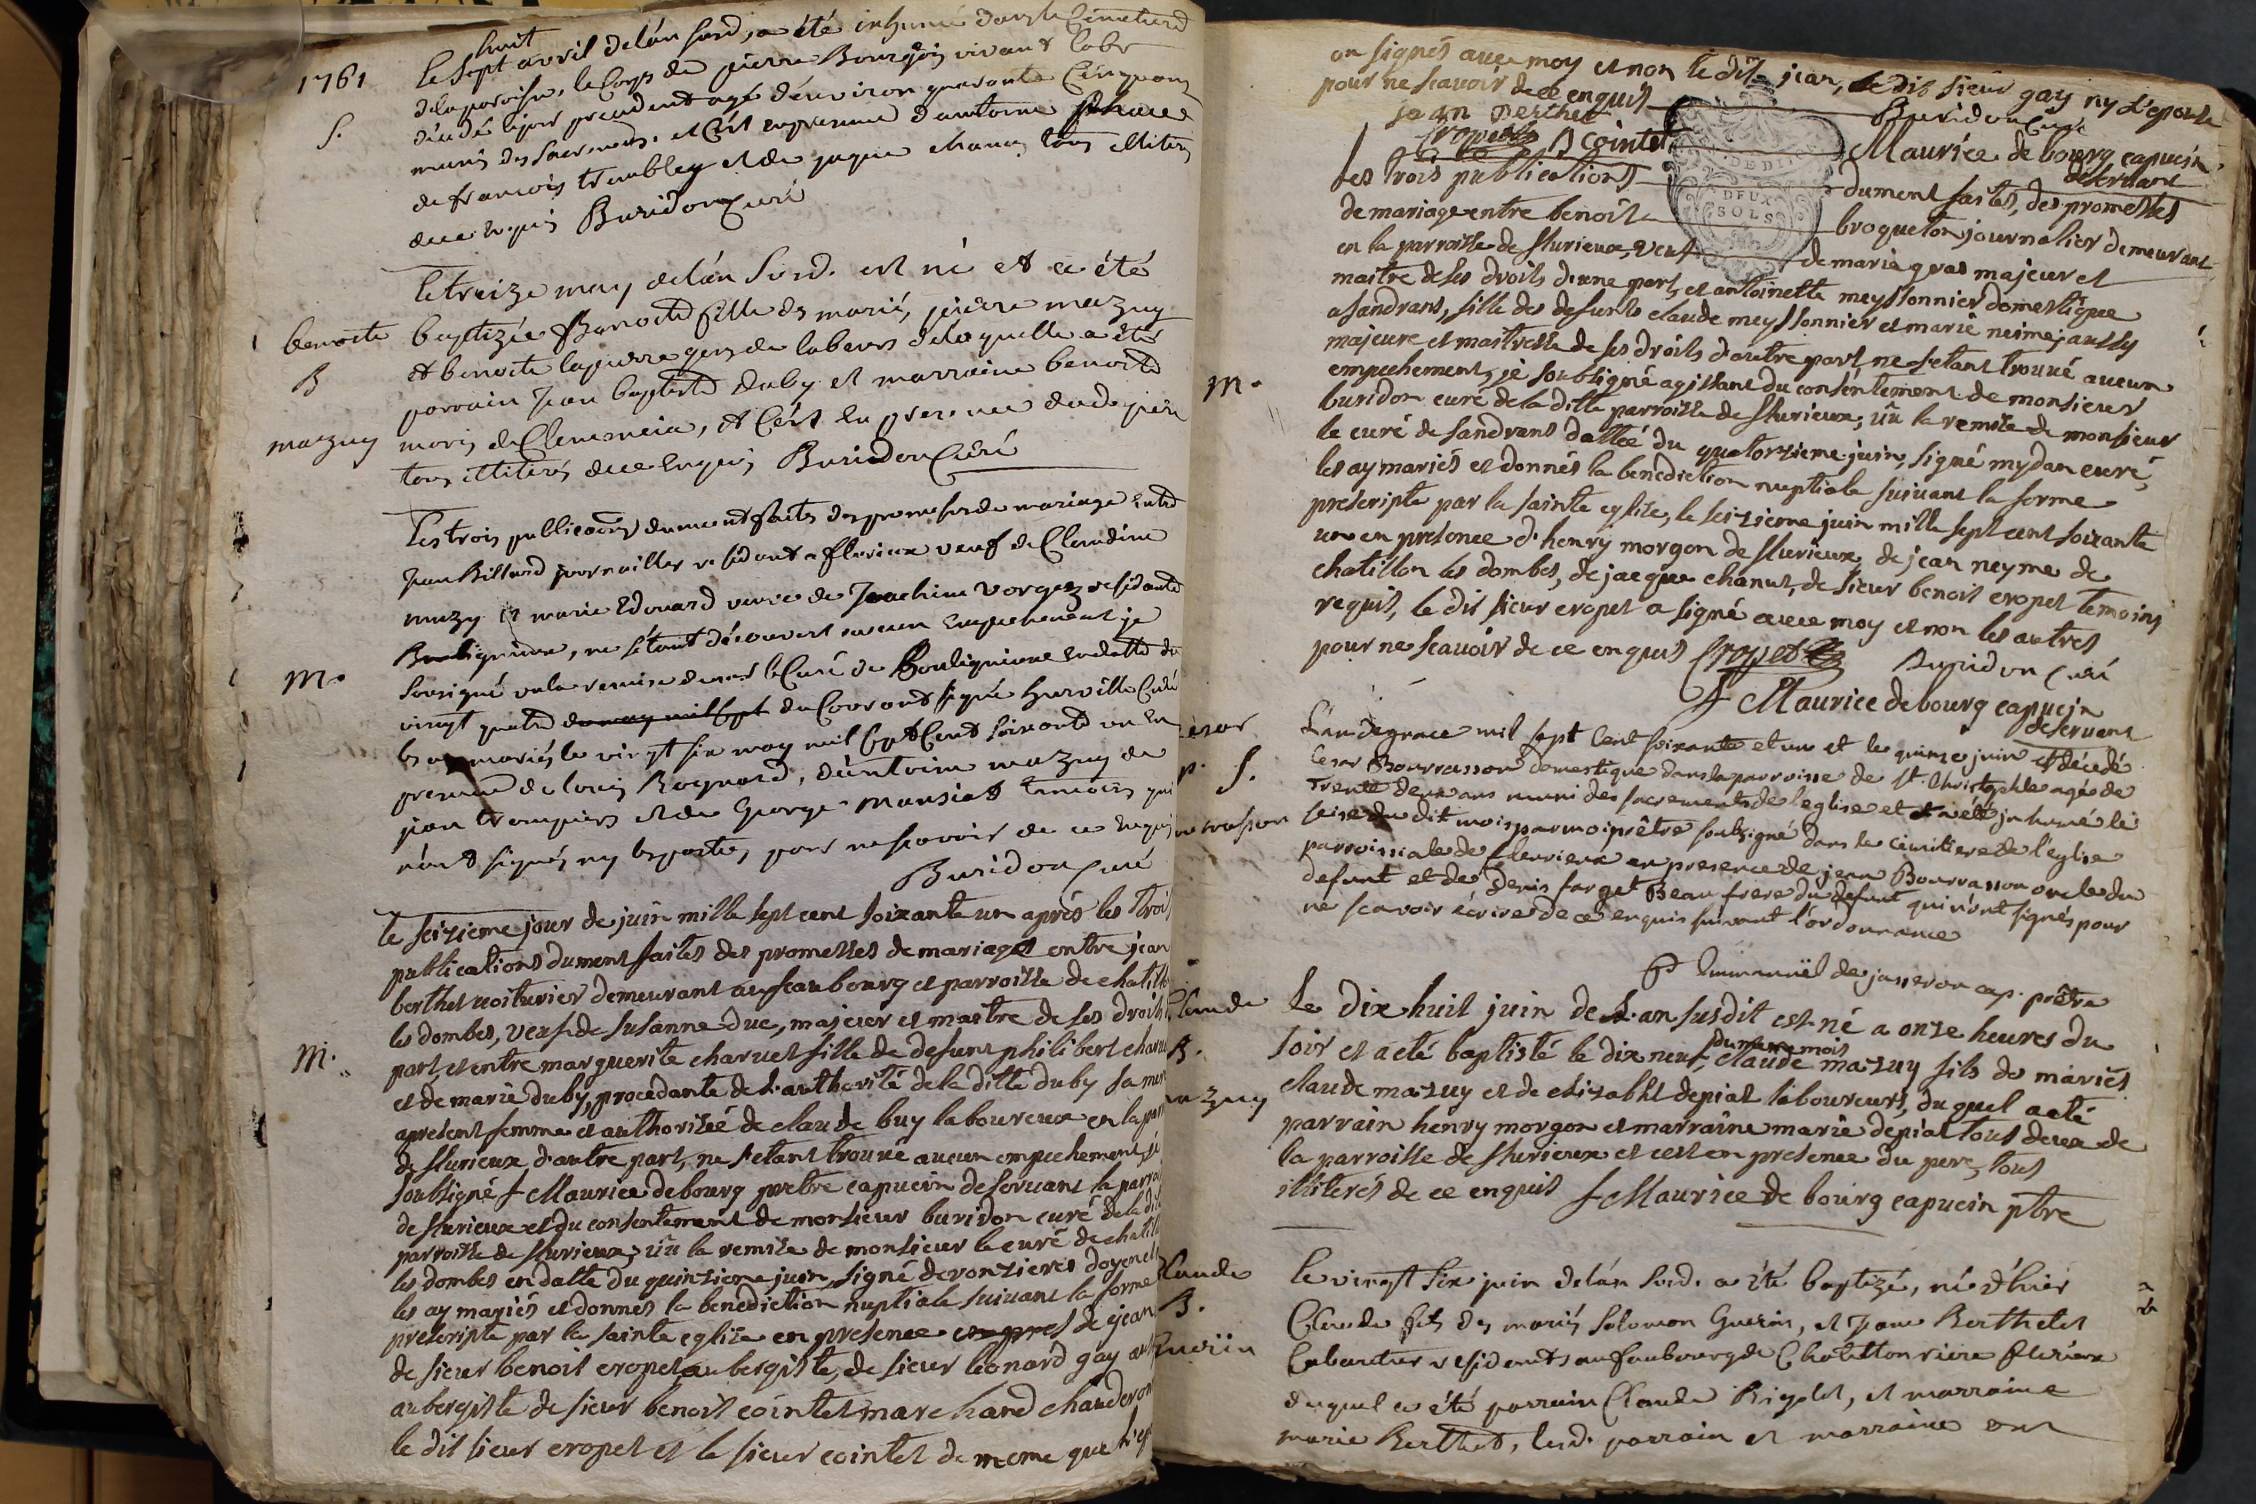 1761
huit
Le sept avril delán susd, a été inhumé dans le Cimetierd
delaparoisse, le Corps de pierre Bourgeois vivant labr
décédé le jour precedent agé d'environ quarante Cinq ans
S.
muni des Sacrements, et C'est en presence d'antoine
de francois trembley et de jaque chanu, tous illiteres
de ce enquis Buridon Curé
le treize may delán Susd. est né et a été
benoite
baptizée Benoite fille des mariés pierre mazuy
B
et benoite lapierre gens de labeurs delaquelle a été
parrain Jean baptiste duby et marraine benoite
mazuy
morin de Clemencia, et C'est en presence dud. père
tous illiterés de ce enquis Buridon Curé
Les trois publicaons dument faites des promesses de mariage Entre
Jean Billand journaillier residant a flurieux veuf de Claudine
mazuy et marie Edouard veuve de Joachim Vorgez residante
a Bouligneux, ne s'étant découvert aucun Empechement je
M.
Sousigné vu la remise de mr le Curé de Bouligneux en datte du
vingt quatre du may mil sept du Courant signé hurville Curé
les ay mariés le vingt six may mil sept Cent soixante un En
presence de louis Rognard, d'antoine mazuy de
jean trempiers et de George mansiat temoins qui
n'ont signés ny les parties, pour ne scavoir de ce Enquis
Buridon Curé
le seizieme jour de juin mille sept cent soixante un aprés les trois
publications dument faites des promesses de mariage entre jean
berthet voiturier demeurant au feaubourg et parroisse de chatill
les dombes, veuf de susanne duc, majeur et maitre de ses droits
M.
part, et entre marguerite charvet fille de defunt philibert charv
et de marie duby, procedante de l'authorité de la ditte duby sa mere
apresent femme et authorisée de claude buy laboureur en la par
de flurieux d'autre part, ne s'etant trouvé aucun empechement, je
soubsigné f Maurice de bourg prêtre capucin deservant la parroi
de flurieux et du consentement de monsieur buridon curé de la di
parroisse de flurieux; vû la remise de monsieur le curé de chatill
les dombes en datte du quinzieme juin signé devonzieres doyen
les ay mariés et donnés la benediction nuptiale suivant la forme
prescripte par la sainte eglise en presence de jean
de sieur benoit cropet aubergiste, de sieur leonard gay
aubergiste de sieur benoit cointet marchand chauderon
le dit sieur cropet et le sieur cointet de meme que
on signés avec moy et non le dit jean, le dit sieur gay ny l'epouse
pour ne scavoir de ce enquis
jean Berthet Buridon Curé
Cropet B Cointet Maurice de bourg capucin
deservant
DEUX
SOLS
les trois publications dument faites, des promesses
de mariage entre benoit broqueton journalier demeurant
en la parroisse de flurieux, veuf de marie gras majeur et
maitre de ses droits d'une part, et antoinette meyssonnier domestique
a sandrans, fille des defunts claude meyssonnier et marie neime jaussy
majeure et maitresse de ses droits d'autre part, ne s'etant trouvé aucun
empechement, je soubsigné agissant du consentement de monsieur
M.
buridon curé de la ditte parroisse de flurieux; vû la remise de monsieur
le curé de sandrans dattée du quatorzieme juin, signé mydan curé,
les ay mariés et donnés la benediction nuptiale suivant la forme
prescripte par la sainte eglise, le seizieme juin mille sept cent soixante
un en presence d'henry morgon de flurieux, de jean neyme de
chatillon les dombes, de jacque chanut, de sieur benoit cropet temoins
requis, le dit sieur cropet a signé avec moy et non les autres
pour ne scavoir de ce enquis Cropet Buridon Curé
f Maurice de bourg capucin
deservant
L'an de grace mil sept Cent soixante et un et le quinze juin est décédé
Cesar Bourrasson domestique dans la parroisse de St. christophle agé de
S.
Trente deux ans muni des sacrements de l'eglise et a été inhumé le
seise du dit mois par moi prêtre soubsigné dans le cimitiere de l'eglise
parroissiale de fleurieux en presence de jean Bourrasson oncle du
defunt et de Denis farget Beau frere du defunt qui n'ont signés pour
ne scavoir écrire de ce enquis suivant l'ordonnance
f Emmanuël de jasseron cap. prêtre
Claude
Le dix huit juin de l'an susdit est né a onze heures du
B.
soir et a eté baptisté le dix neuf du meme mois, claude mazuy fils de mariés
mazuy
claude mazuy et de elizabht depiat laboureurs, du quel a eté
parrain henry morgon et marraine marie depiat tous deux de
la parroisse de flurieux et cest en presence du pere, tous
illiterés de ce enquis f Maurice de bourg capucin ptbre
Claude
le vingt six juin delán susd. a été baptizé, né d'hier
B.
Claude fils des mariés Solomon Guerin, et Jane Berthelet
Guerin
Cabaretier residents au faubourg de Chatillon riere flurieux
duquel a été parrain Claude Rigolet, et marraine
marie Berthet, lesd. parrain et marraine ont